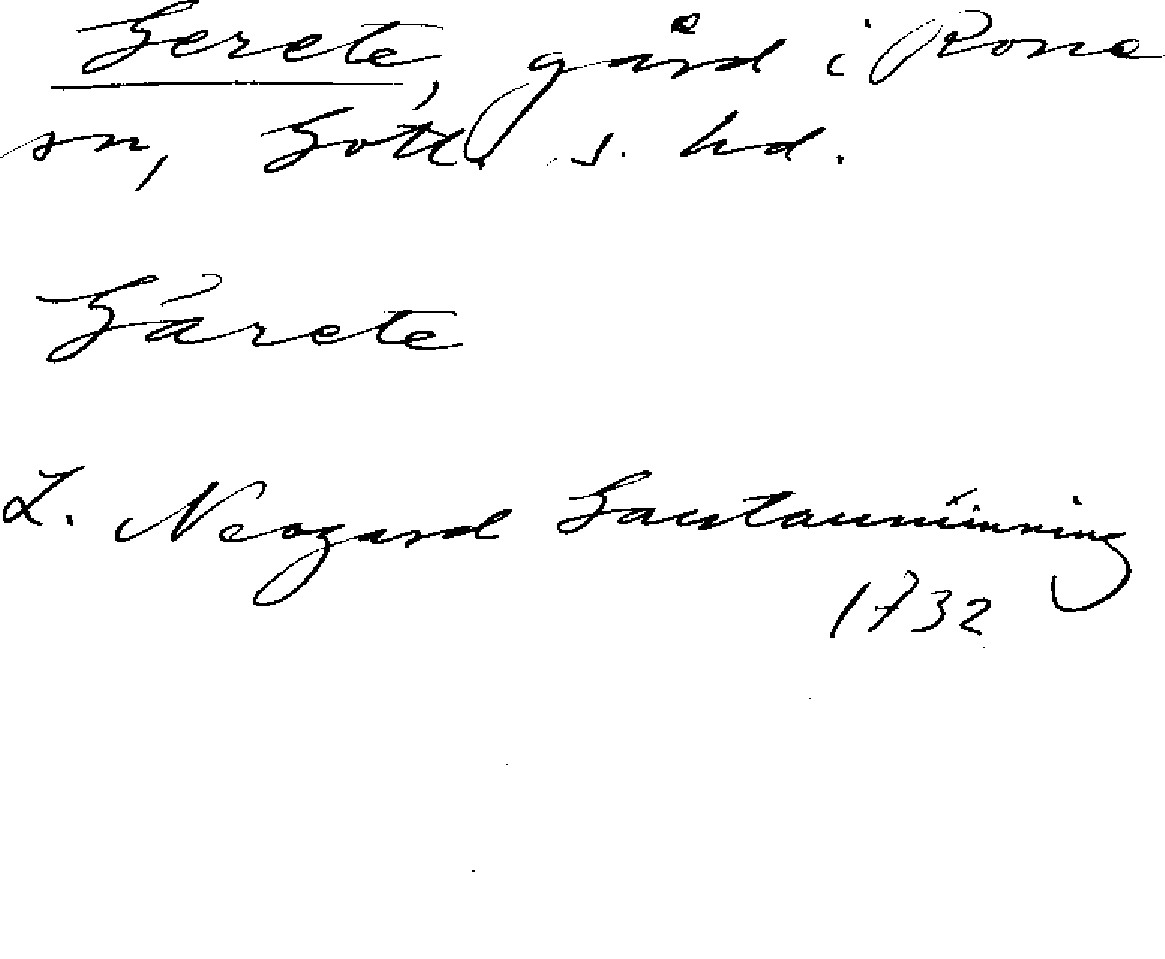 Gerete, gård i Rone
sn, Gotl. s. hd.
Gárete
L. Neogard Gautauminning
1732